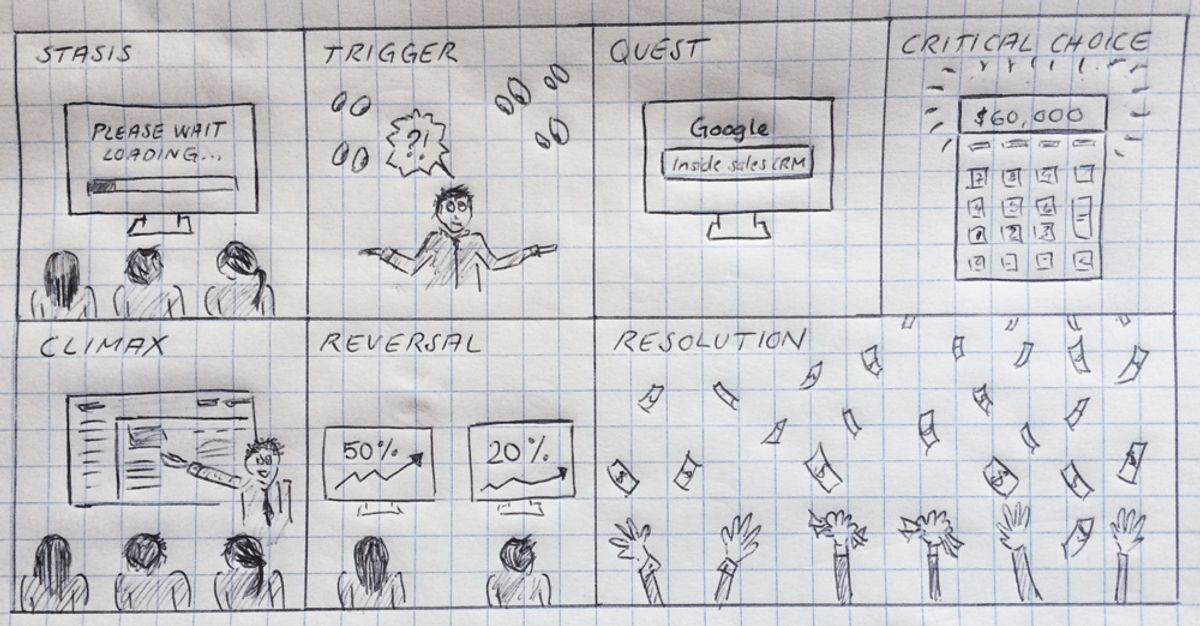 STASIS
PLEASE WAIT
LOADING...
TRIGGER
?!
QUEST
Google
Inside sales CRM
CRITICAL CHOICE
$60,000
CLIMAX
REVERSAL
50%
20%
RESOLUTION